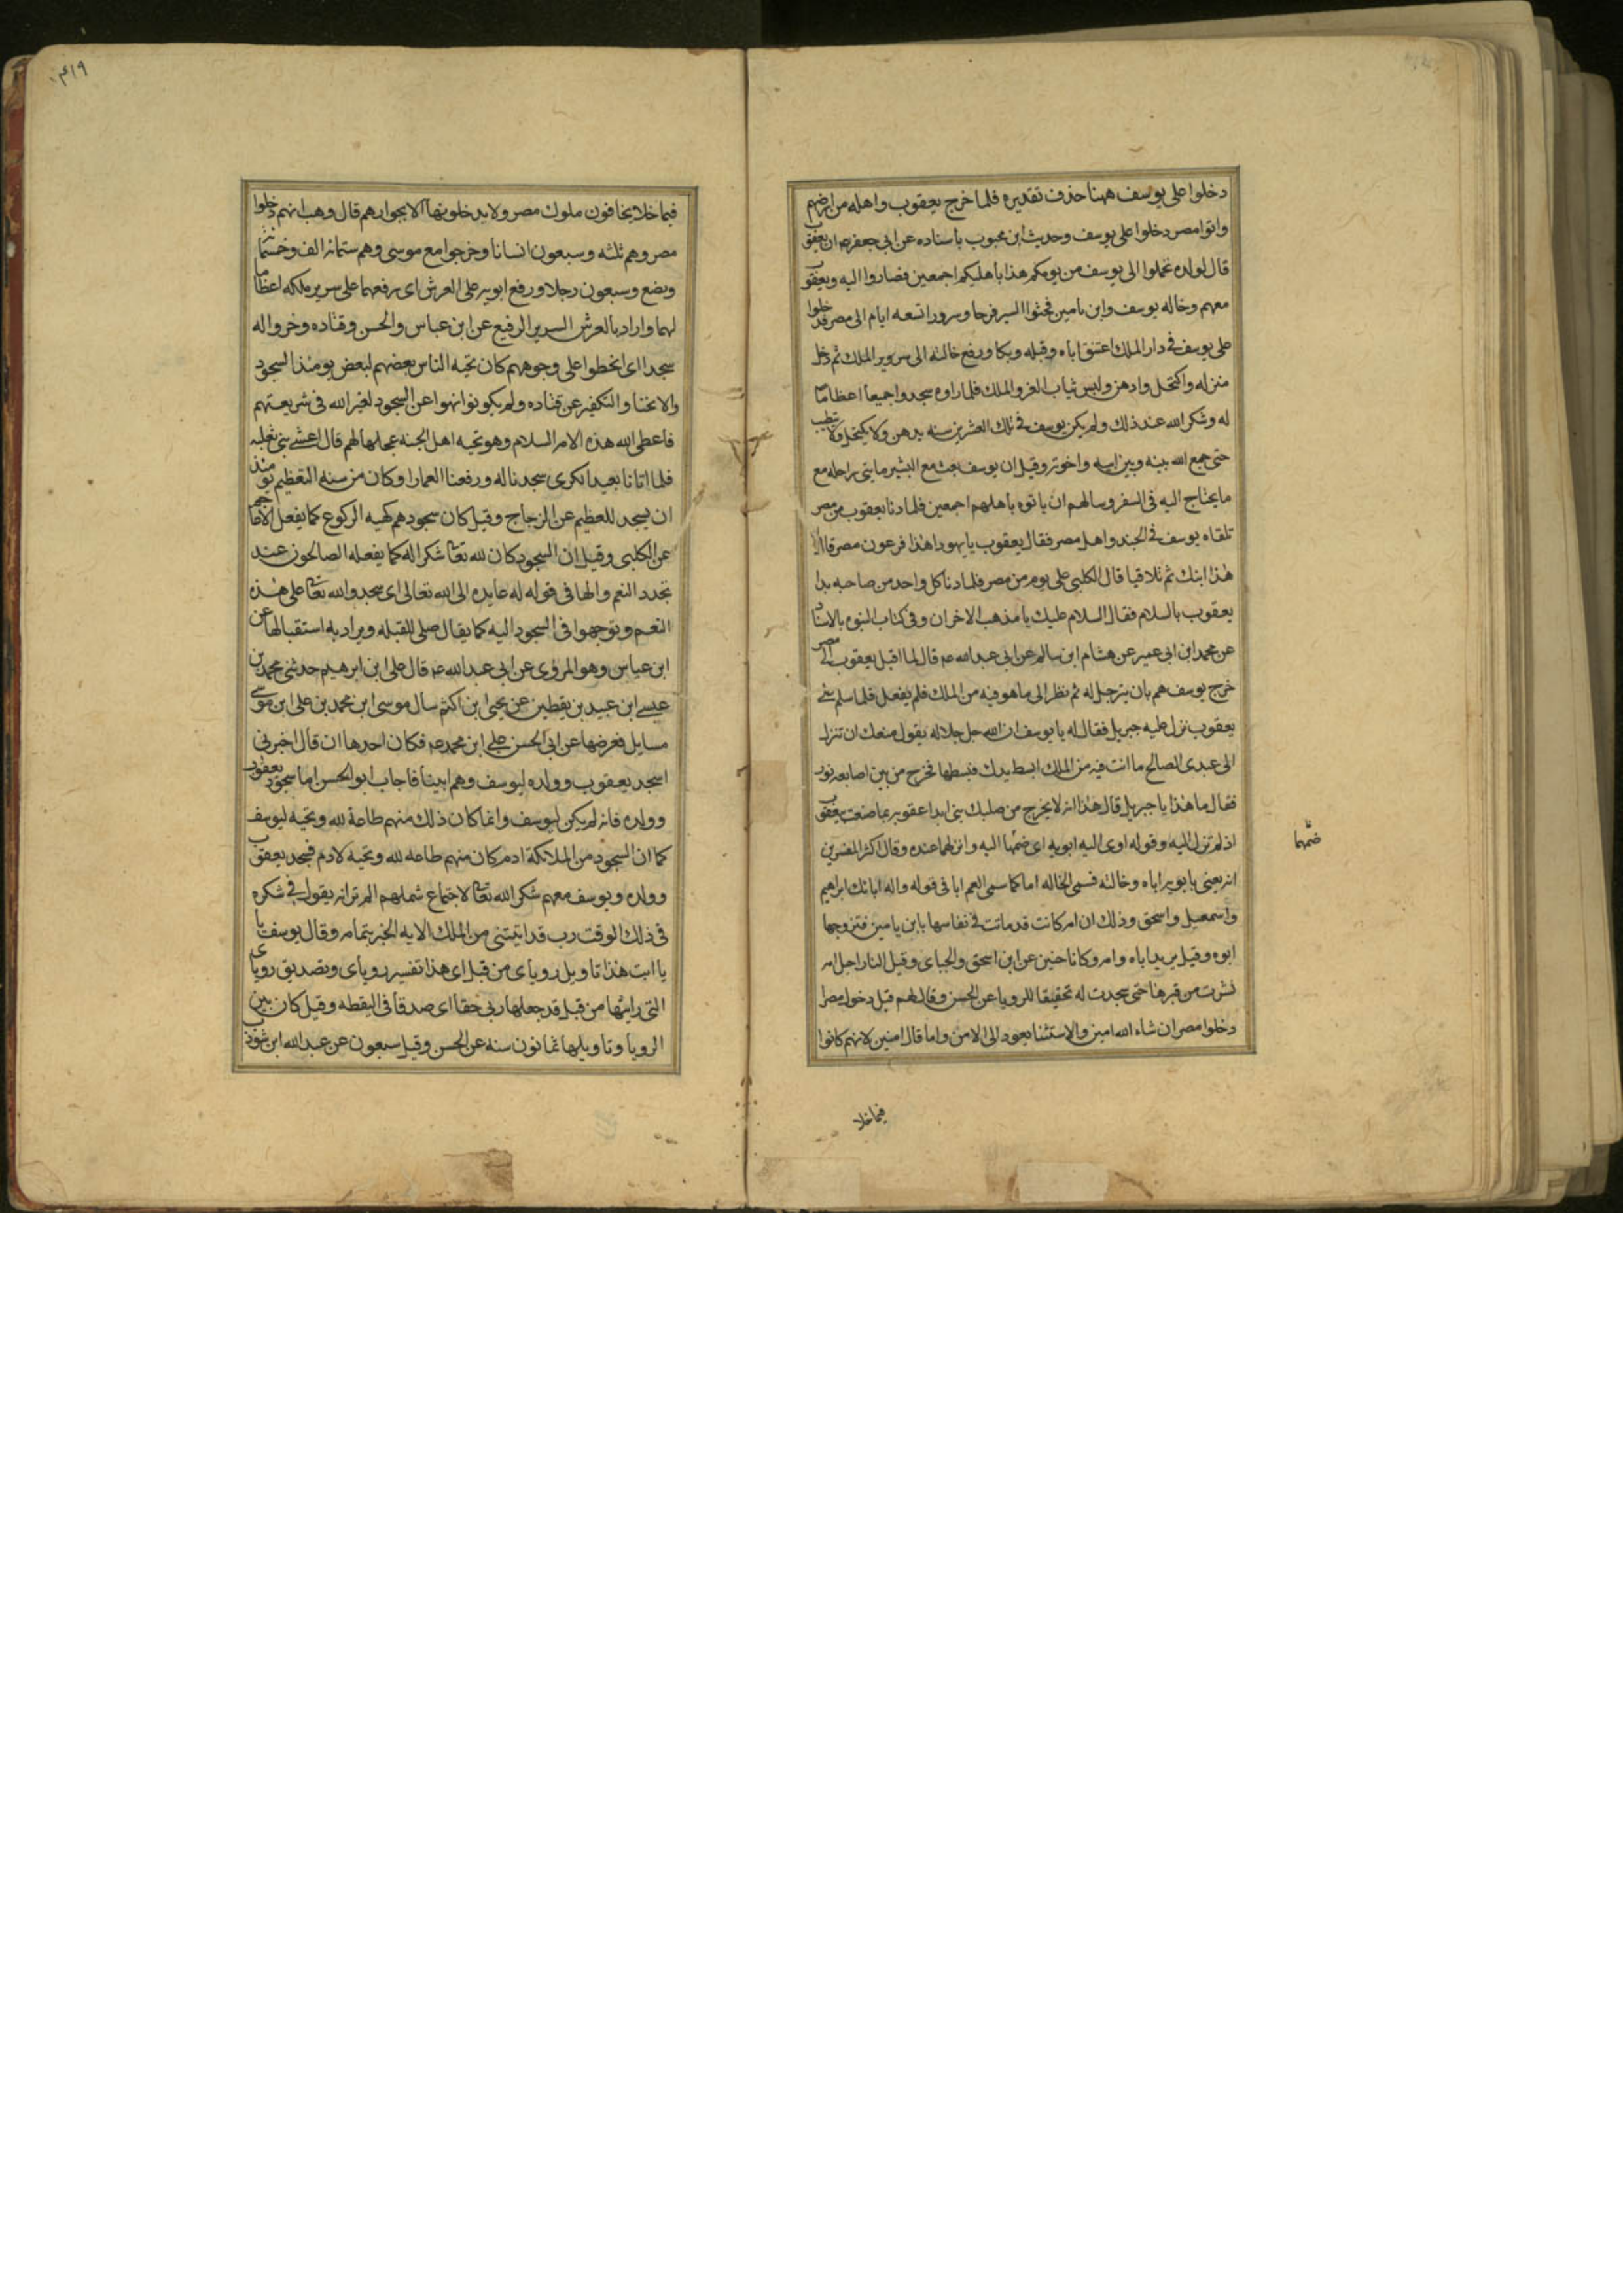 دخلوا على يوسف ههنا حذف تقديره فلما خرج يعقوب واهله من ارضهم
واتوا مصر دخلوا على يوسف وحديث ابن محبوب باسناده عن ابي جعفر ان يعقوب
قال لولده تحملوا الى يوسف من يومكم هذا باهليكم اجمعين فصاروا اليه ويعقوب
معهم وخاله يوسف وابن يامين فحثوا السير فرحا وسرورا تسعه ايام الى مصر فدخلوا
على يوسف في دار الملك اعتنق اباه وقبله وبكا ورفع خالته الى سرير الملك ثم دخل
منزله واكتحل وادهن ولبس ثياب العز والملك فلما راوه سجدوا جميعا اعظاما
له وشكر الله عند ذلك ولم يكن يوسف في تلك العشرين سنه يدهن ولا يكتحل ولا يتطيب
حتى جمع الله بينه وبين ابيه واخوته وقيل ان يوسف بعث مع البشير مايتي راحله مع
ما يحتاج اليه في السفر وسالهم ان ياتوه باهلهم اجمعين فلما دنا يعقوب من مصر
تلقاه يوسف في الجند واهل مصر فقال يعقوب يا يهودا هذا فرعون مصر قال لا
هذا ابنك ثم تلاقيا قال الكلبي على يوم من مصر فلما دنا كل واحد من صاحبه بدا
يعقوب بالسلام فقال السلام عليك يا مذهب الاحزان وفي كتاب النبوه بالاسناد
عن محمد ابن ابي عمير عن هشام ابن سالم عن ابي عبد الله عه قال لما اقبل يعقوب الى مصر
خرج يوسف هم بان يترجل له ثم نظر الى ما هو فيه من الملك فلم يفعل فلما سلم على
يعقوب نزل عليه جبريل فقال له يا يوسف ان الله جل جلاله يقول منعك ان تنزل
الى عبدى الصالح ما انت فيه من الملك ابسط يدك فبسطها فخرج من بين اصابعه نور
فقال ما هذا يا جبريل قال هذا انه لا يخرج من صلبك نبي ابدا عقوبه بما صنعت بيعقوب
اذ لم تنزل اليه وقوله اوى اليه ابويه اى ضمها اليه وانزلهما عنده وقال اكثر المفسرين
ضمهما
انه يعنى بابويه اباه وخالته فسمى الخاله اما كما سمى العم ابا في قوله واله ابائك ابراهيم
واسمعيل واسحق وذلك ان امه كانت قد ماتت في نفاسها بابن يامين فتزوجها
ابوه وقيل يريد اباه وامه وكانا حيين عن ابن اسحق والجباى وقيل
نشرت من قبرها حتى سجدت له تحقيقا للرويا عن الحسن وقال لهم قبل دخولهم مصر
دخلوا مصر ان شاء الله امنين والاستثنا يعود الى الامن وانما قال امنين لانهم كانوا
فيما خلا
فيما خلا يخافون ملوك مصر ولا يدخلونها الا بجوارهم قال وهب انهم دخلوا
مصر وهم ثلثه وسبعون انسانا وخرجوا مع موسى وهم ستمائه الف وخمسمائه
وبضع وسبعون رجلا ورفع ابويه على العرش اى رفعهما على سرير ملكه اعظاما
لهما واراد بالعرش السرير الرفيع عن ابن عباس والحسن وقتاده وخروا له
سجدا اى انحطوا على وجوههم كان تحيه الناس بعضهم لبعض يومئذ السجود
والانحنا والتكفير عن قتاده ولم يكونوا نهوا عن السجود لغير الله في شريعتهم
فاعطى الله هذه الامه السلام وهو تحيه اهل الجنه عجلها لهم قال اعشى بنى ثعلبه
فلما اتانا بعيد الكرى سجدنا له ورفعنا العمارا وكان من سنه التعظيم يومئذ
ان يسجد للعظيم عن الزجاج وقيل كان سجودهم كهيه الركوع كما يفعل الاعاجم
عن الكلبى وقيل ان السجود كان لله تعالى شكرا له كما يفعله الصالحون عند
تجدد النعم والها في قوله له عايده الى الله تعالى اى سجدوا لله تعالى على هذه
النعم وتوجهوا في السجود اليه كما يقال صلى للقبله ويراد به استقبالها عن
ابن عباس وهو المروى عن ابي عبد الله عه قال على ابن ابرهيم حدثنى محمد بن
عيسى ابن عبيد بن يقطين عن يحيى ابن اكثم سال موسى ابن محمد بن على ابن موسى
مسايل فعرضها عن ابي الحسن على ابن محمد عه فكان احدها ان قال اخبرنى
اسجد يعقوب وولده ليوسف وهم انبيا فاجاب ابو الحسن اما سجود يعقوب
وولده فانه لم يكن ليوسف وانما كان ذلك منهم طاعة لله وتحيه ليوسف
كما ان السجود من الملائكة لادم كان منهم طاعه لله وتحيه لادم فسجد يعقوب
وولده ويوسف معهم شكر الله تعالى لاجتماع شملهم الم تر انه يقول في شكره
في ذلك الوقت رب قد اتيتنى من الملك الايه الخبر بتمامه وقال يوسف يا
يا ابت هذا تاويل روياى من قبل اى هذا تفسير روياى وتصديق روياى
التى رايتها من قبل قد جعلها ربى حقا اى صدقا في اليقظه وقيل كان بين
الرويا وتاويلها ثمانون سنه عن الحسن وقيل سبعون عن عبد الله ابن شوذب